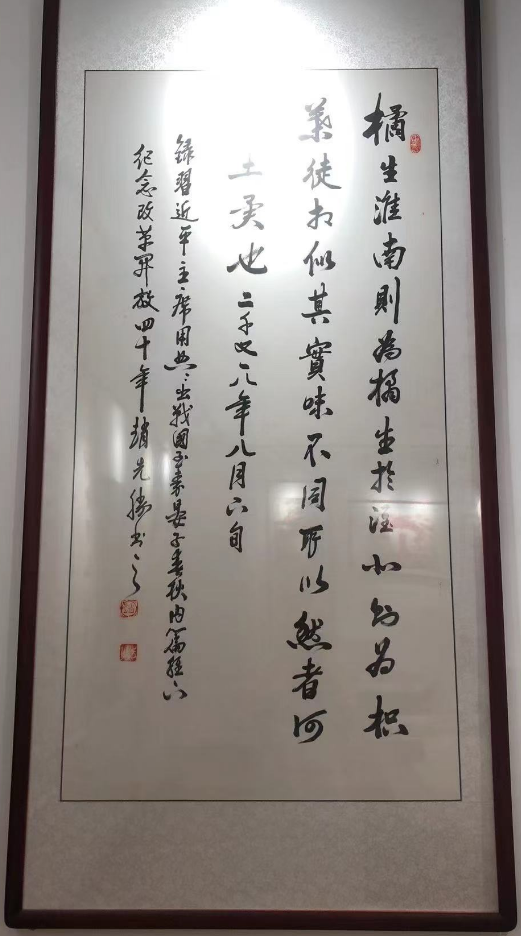 橘生淮南則為橘生於淮北則為枳
葉徒相似其實味不同所以然者何
水土異也二千〇一八年八月六旬
錄習近平主席用典：出戰國至秦晏子春秋內篇雜下
紀念改革開放四十年趙先勝書之